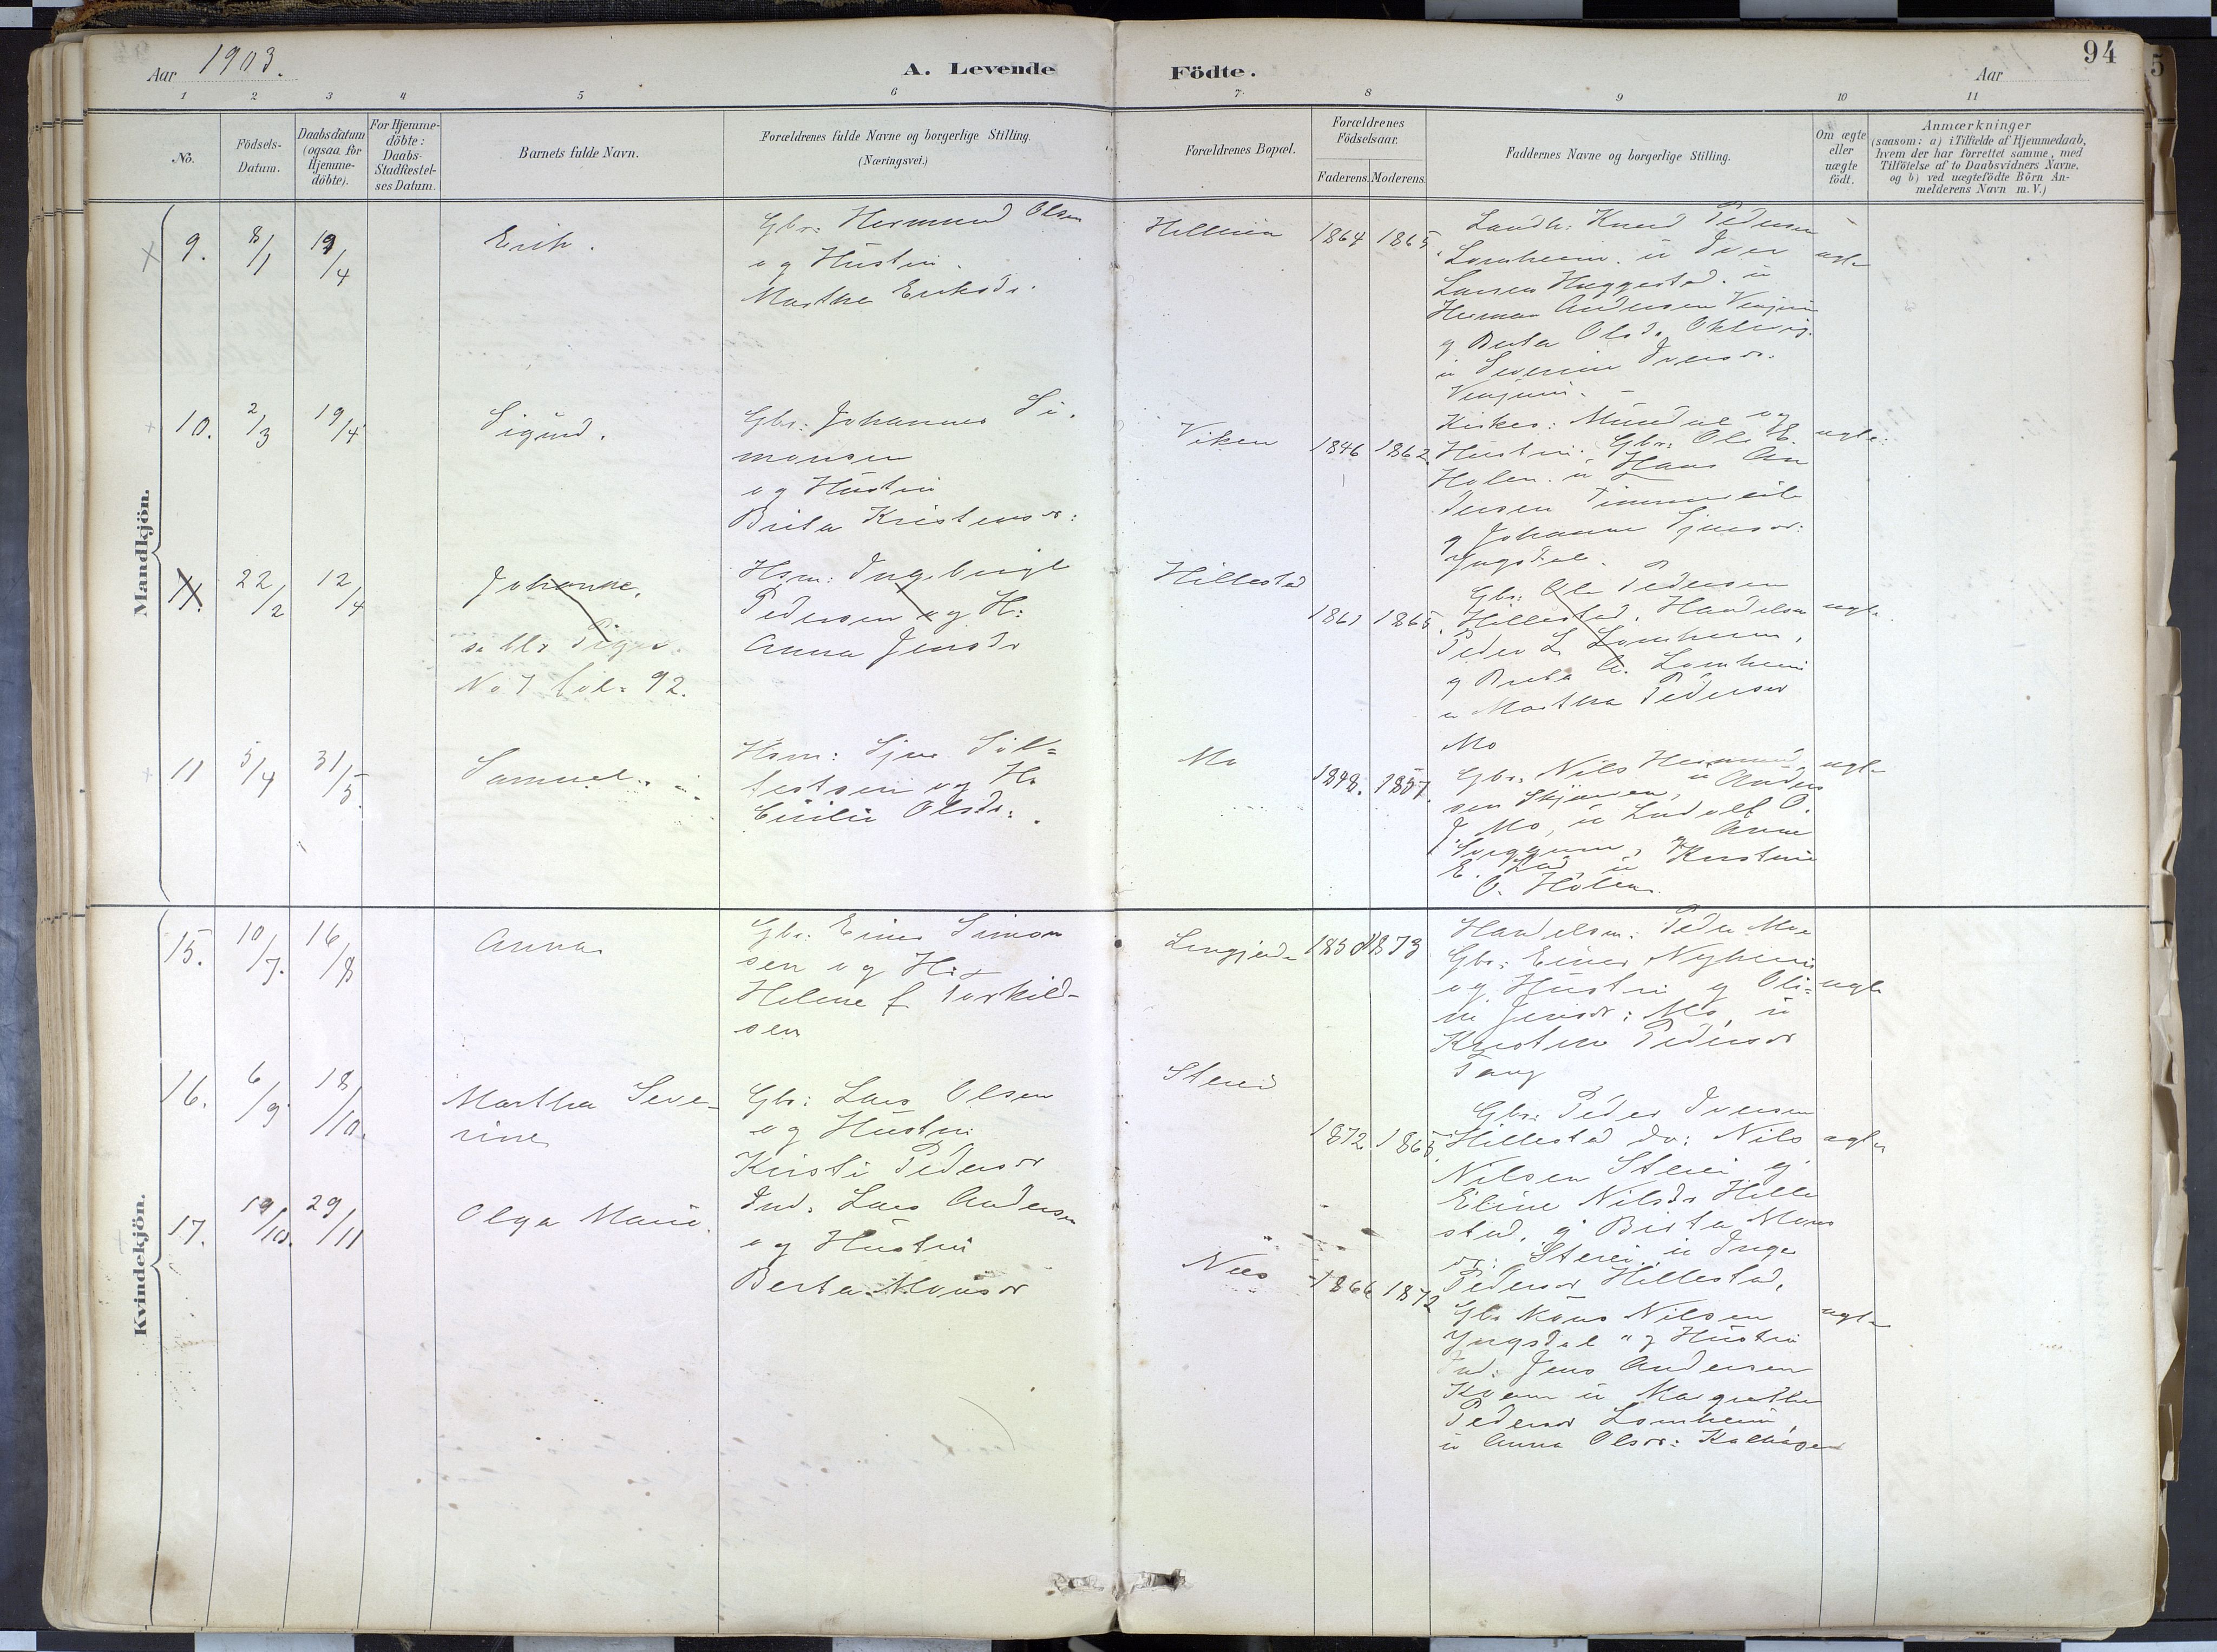 94
Aar 1903.
A. Levende Födte.
Aar
1 2 3 4 5 6 7 8 9 10 11
No.
Födsels-Datum.
Daabsdatum (ogsaa for Hjemme-döbte).
For Hjemme-döbte: Daabs-Stadfæstel-ses Datum.
Barnets fulde Navn.
Forældrenes fulde Navne og borgerlige Stilling.
(Næringsvei.)
Forældrenes Bopæl.
Forældrenes Födselsaar.
Faderens. Moderens.
Faddernes Navne og borgerlige Stilling.
Om ægte eller uægte födt.
Anmærkninger
(saasom: a) i Tilfælde af Hjemmedaab,
hvem der har forrettet samme, med
Tilföielse af to Daabsvidners Navne,
og b) ved uægtefödte Börn An-
melderens Navn m. V.)
Mandkjön.
9. 8/1 19/4
Erik.
Gbr: Hermund Olsen
og Hustru
Martha Eriksdr.
1864 1865
Landh: Knud Pedersen
Lomheim. u Iver
Larsen Haggestad. u
Herman Andersen Venjum
g Berta Olsd.
u Severine Iversdr.
Venjum.
ægte
10. 2/3 19/4
Sigurd.
Gbr: Johannes Si-
monsen
og Hustru
Brita Kristensdr:
Viken
1846 1862
Kirkes: Mundal og
Hustru. Gbr: Ole E.
Holen. u Hans An
dersen
g Johanne Sjursdr:
Yngsdal.
ægte.
11. 22/2 12/4
Johanne.
se bl: Piger
No 7 fol: 92.
Hsm: Ingebrigt
Pedersen og H:
Anna Jensdr
Hillestad
1861 1865.
Gbr: Ole Pedersen
Hillestad. Handelsm
Peder L Lomheim,
g Berta A. Lomheim
u Martha Pedersdr
Mo
ægte
11 5/4 31/5.
Samuel.
Hsm: Sjur Søl=
festsen og H:
Cicilie Olsdr:
Mo
1848. 1857.
Gbr: Nils Hermund
sen Skjerven, u Anders
J. Mo, u Ludolf O.
g Anna
E. u Kristine
O. Holen.
ægte
Kvindekjön.
15. 10/7. 16/8
Anna
Gbr: Einar Simon
sen og H:
Helene f Torkild-
sen
Lingjerde
1850 1873
Handelsm: Peder Moe
Gbr: Einar Nyheim
og Hustru g Oli=
ne Jensdr: Mo, u
Kristine Pedersdr
Tang
ægte
16. 6/9 18/10.
Martha Seve-
rine
Gbr: Lars Olsen
og Hustru
Kristi Pedersdr
Sterei
1872. 1865
Gbr: Peder Iversen
Hillestad do: Nils
Nilsen Sterei g
Eline Nilsdr Hille
stad, g Birta Mons
dr: Sterei u Inga
Pedersdr Hillestad,
ægte
17. 19/10. 29/11
Olga Marie.
Ind: Lars Andersen
og Hustru
Berta Monsdr
Nes
1866 1872
Gbr Mons Nilsen
Yngsdal og Hustru
Ind: Jens Andersen
Kvam u Margrethe
Pedersdr Lomheim,
u Anna Olsdr: Kalhagen
ægte